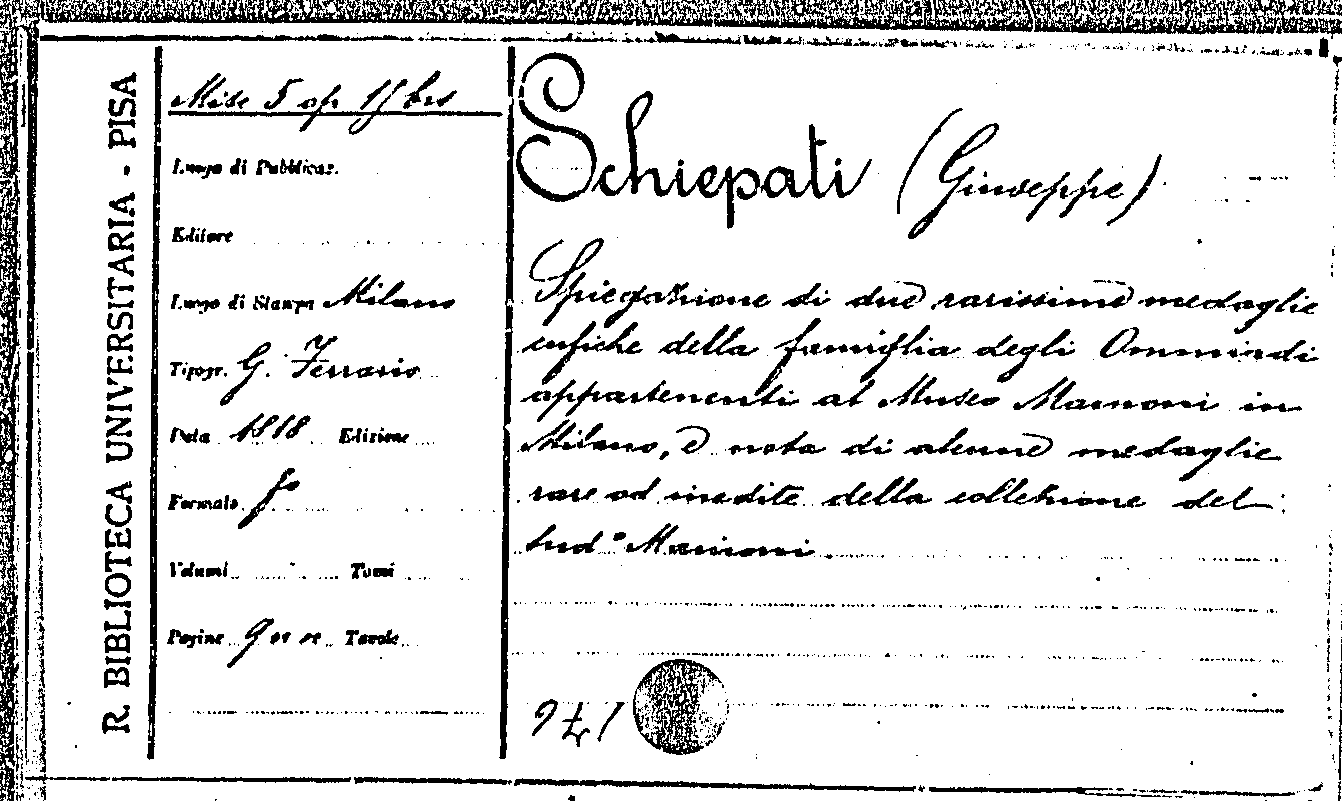 R. BIBLIOTECA UNIVERSITARIA - PISA
Misc 5 op 15 bis
Luogo di Pubblicaz.
Editore
Luogo di Stampa Milano
Tipogr. G. Ferrario
Data 1818 Edizione
Formato fo
Volumi Tomi
Pagine Tavole
Schiepati (Giuseppe)
Spiegazione di due rarissime medaglie
cufiche della famiglia degli Ommiadi
appartenenti al Museo Mainoni in
Milano, e nota di alcune medaglie
rare od inedite della collezione del
sud° Mainoni